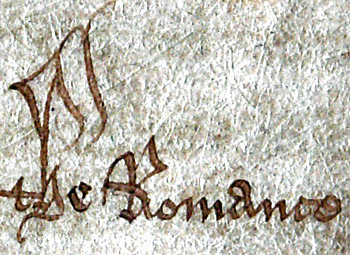 the Romance